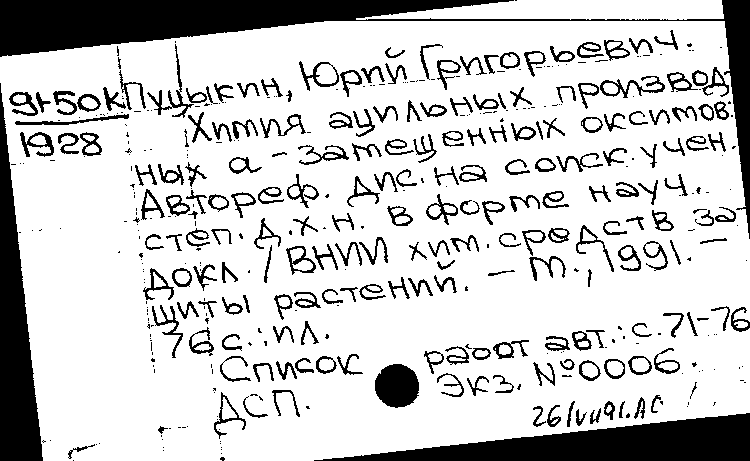 91-50К Пуцыкин, Юрий Григорьевич.
1928 Химия ацильных производ-
ных α-замещенных оксимов:
Автореф. дис. на соиск. учен.
степ. д.х.н. в форме науч.
докл. / ВНИИ хим. средств за-
щиты растений. — М., 1991. —
76 с.: ил.
Список работ авт.: с. 71-76
ДСП. Экз. №0006.
26/VII91. АС